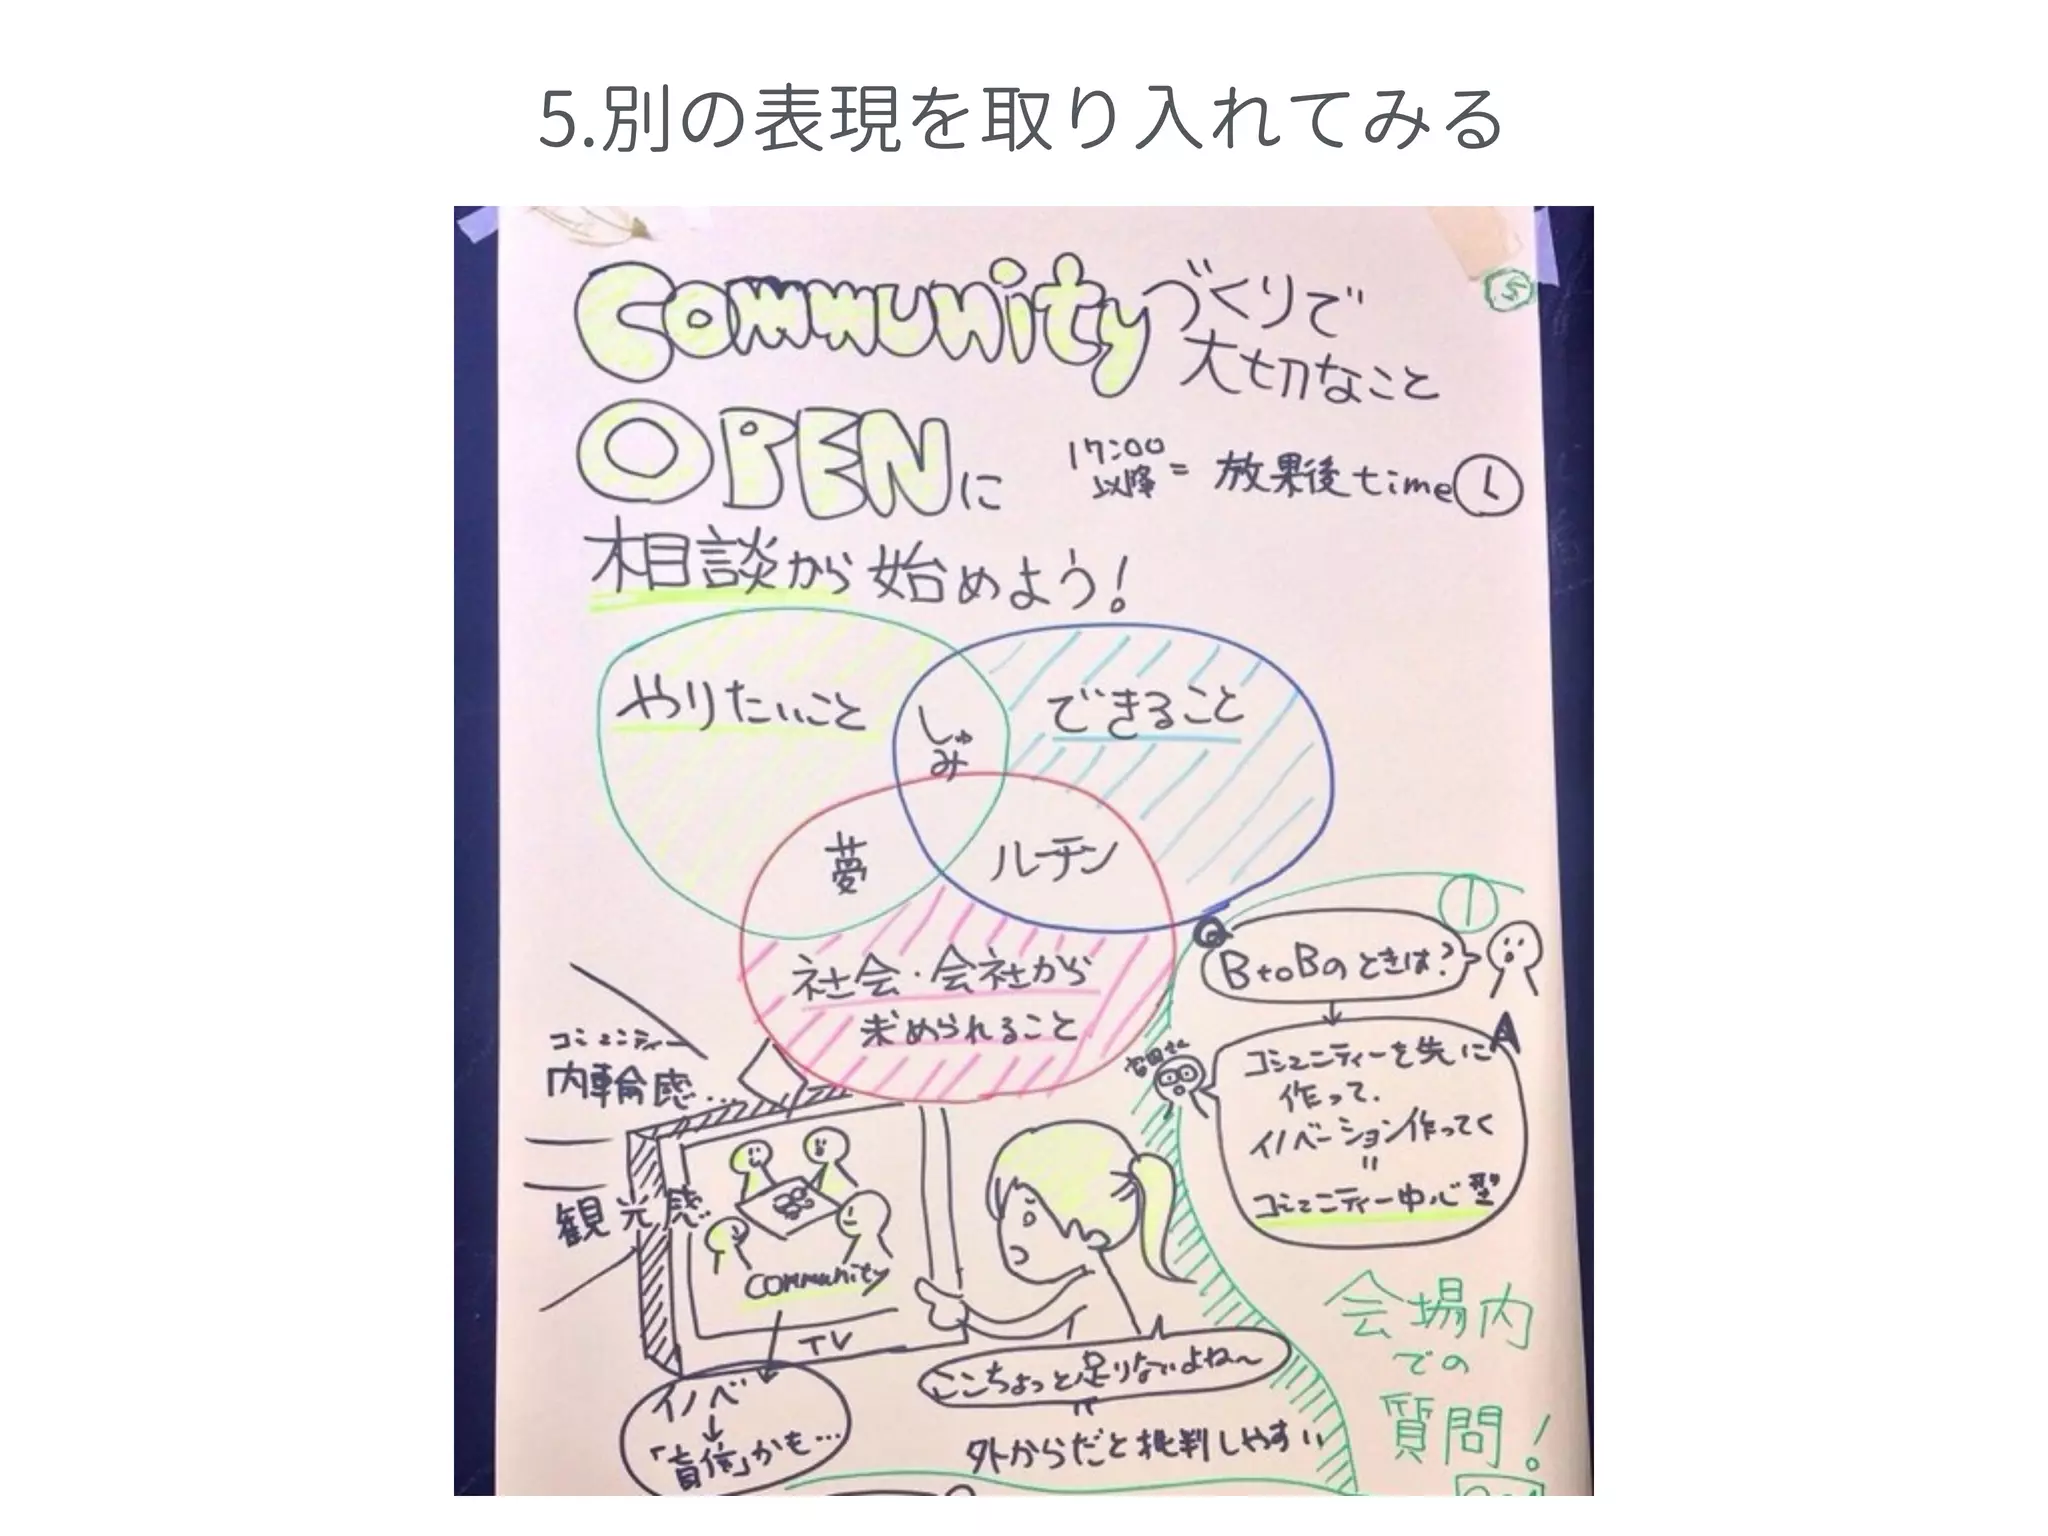 5.別の表現を取り入れてみる
Communityづくりで
大切なこと
5
OPENに
17:00
以降 = 放果後time
相談から始めよう!
やりたいこと
しゅみ
できること
夢
ルーチン
社会・会社から
求められること
コミュニティー
内輪感…
観光感
community
TV
イノベ
↓
かも…
ここちょっと足りないよね〜
=
外からだと批判しやすい
1
Q
BtoBのときは?
A
コミュニティーを先に
作って、
イノベーション作ってく
=
コミュニティー中心型
会場内
での
質問!